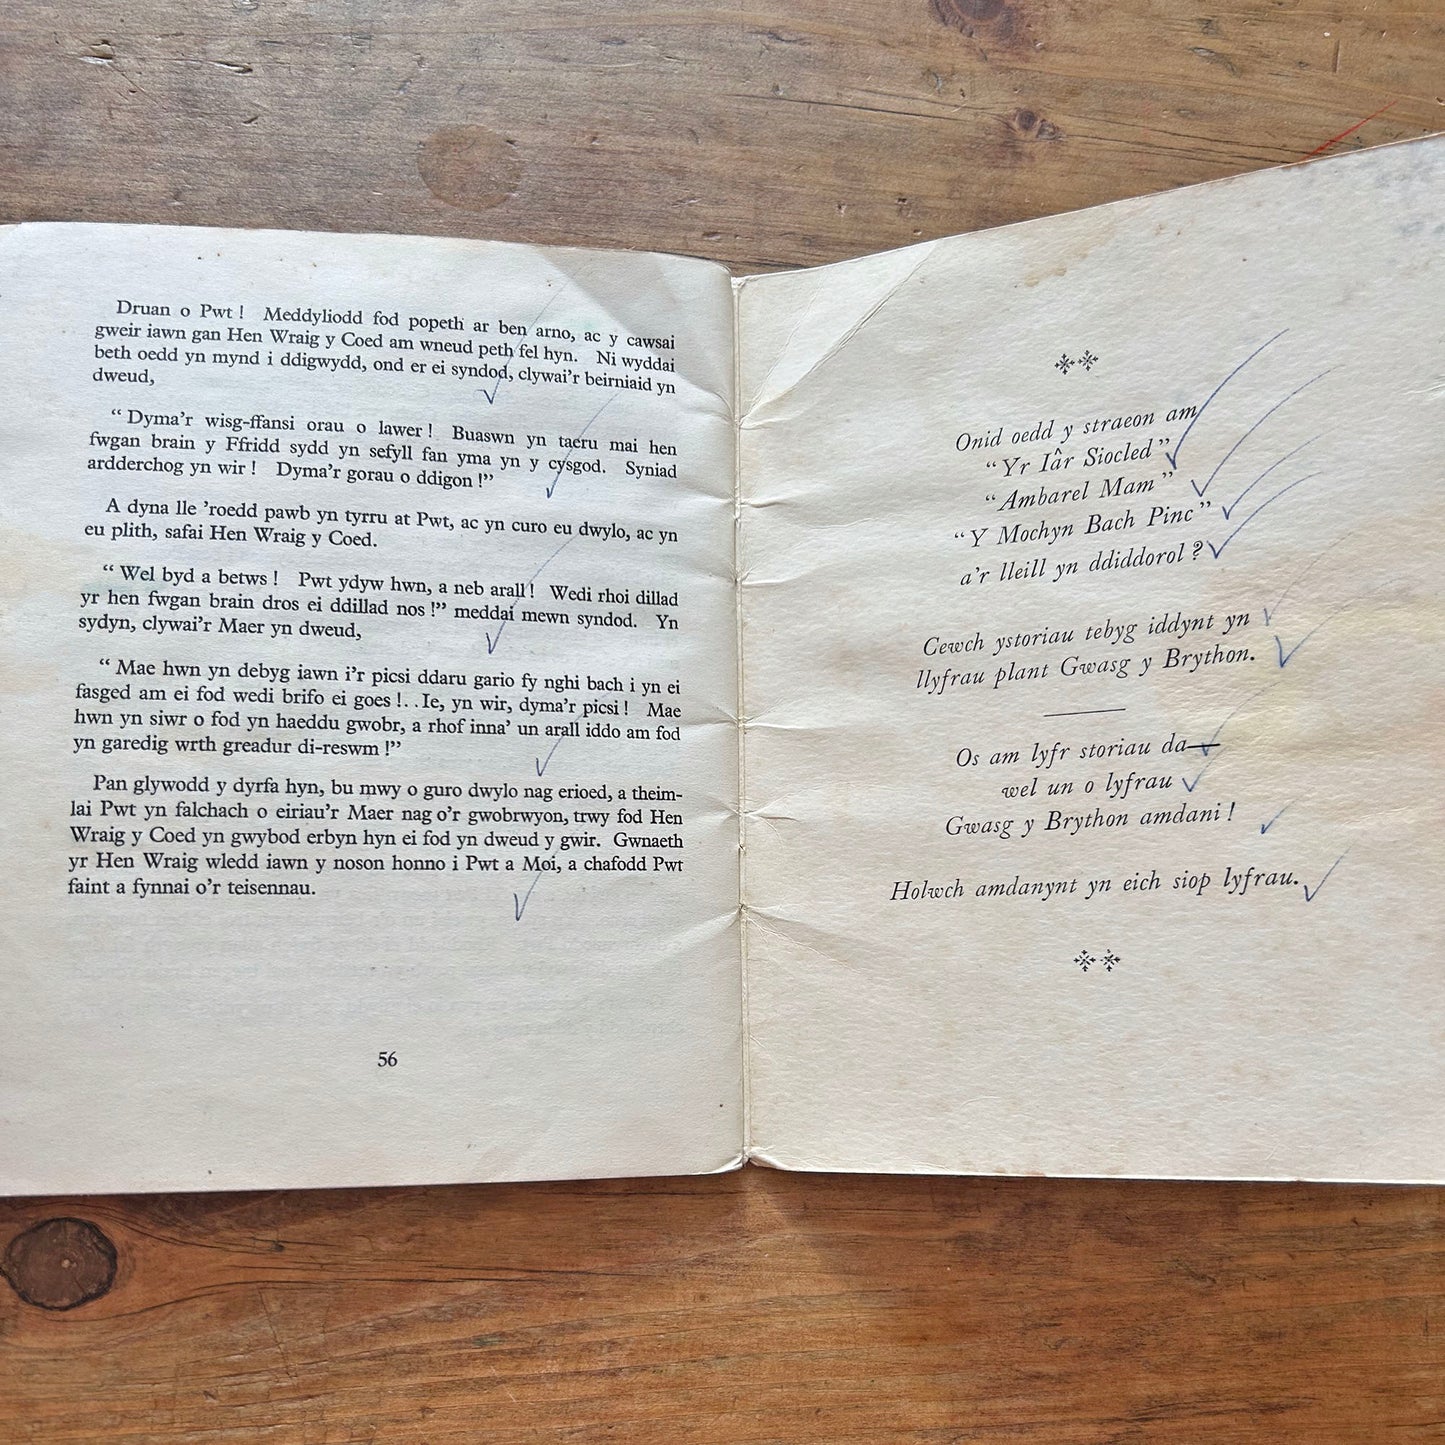 Druan o Pwt ! Meddyliodd fod popeth ar ben arno, ac y cawsai
gweir iawn gan Hen Wraig y Coed am wneud peth fel hyn. Ni wyddai
beth oedd yn mynd i ddigwydd, ond er ei syndod, clywai’r beirniaid yn
dweud,
“ Dyma’r wisg-ffansi orau o lawer ! Buaswn yn taeru mai hen
fwgan brain y Ffridd sydd yn sefyll fan yma yn y cysgod. Syniad
ardderchog yn wir ! Dyma’r gorau o ddigon !”
A dyna lle ’roedd pawb yn tyrru at Pwt, ac yn curo eu dwylo, ac yn
eu plith, safai Hen Wraig y Coed.
“ Wel byd a betws ! Pwt ydyw hwn, a neb arall ! Wedi rhoi dillad
yr hen fwgan brain dros ei ddillad nos !” meddai mewn syndod. Yn
sydyn, clywai’r Maer yn dweud,
“ Mae hwn yn debyg iawn i’r picsi ddaru gario fy nghi bach i yn ei
fasged am ei fod wedi brifo ei goes !. . Ie, yn wir, dyma’r picsi ! Mae
hwn yn siwr o fod yn haeddu gwobr, a rhof inna’ un arall iddo am fod
yn garedig wrth greadur di-reswm !”
Pan glywodd y dyrfa hyn, bu mwy o guro dwylo nag erioed, a theim-
lai Pwt yn falchach o eiriau’r Maer nag o’r gwobrwyon, trwy fod Hen
Wraig y Coed yn gwybod erbyn hyn ei fod yn dweud y gwir. Gwnaeth
yr Hen Wraig wledd iawn y noson honno i Pwt a Moi, a chafodd Pwt
faint a fynnai o’r teisennau.
56
Onid oedd y straeon am
“Yr Iâr Siocled”
“Ambarel Mam”
“Y Mochyn Bach Pinc”
a’r lleill yn ddiddorol ?
Cewch ystoriau tebyg iddynt yn
llyfrau plant Gwasg y Brython.
Os am lyfr storiau da—
wel un o lyfrau
Gwasg y Brython amdani !
Holwch amdanynt yn eich siop lyfrau.